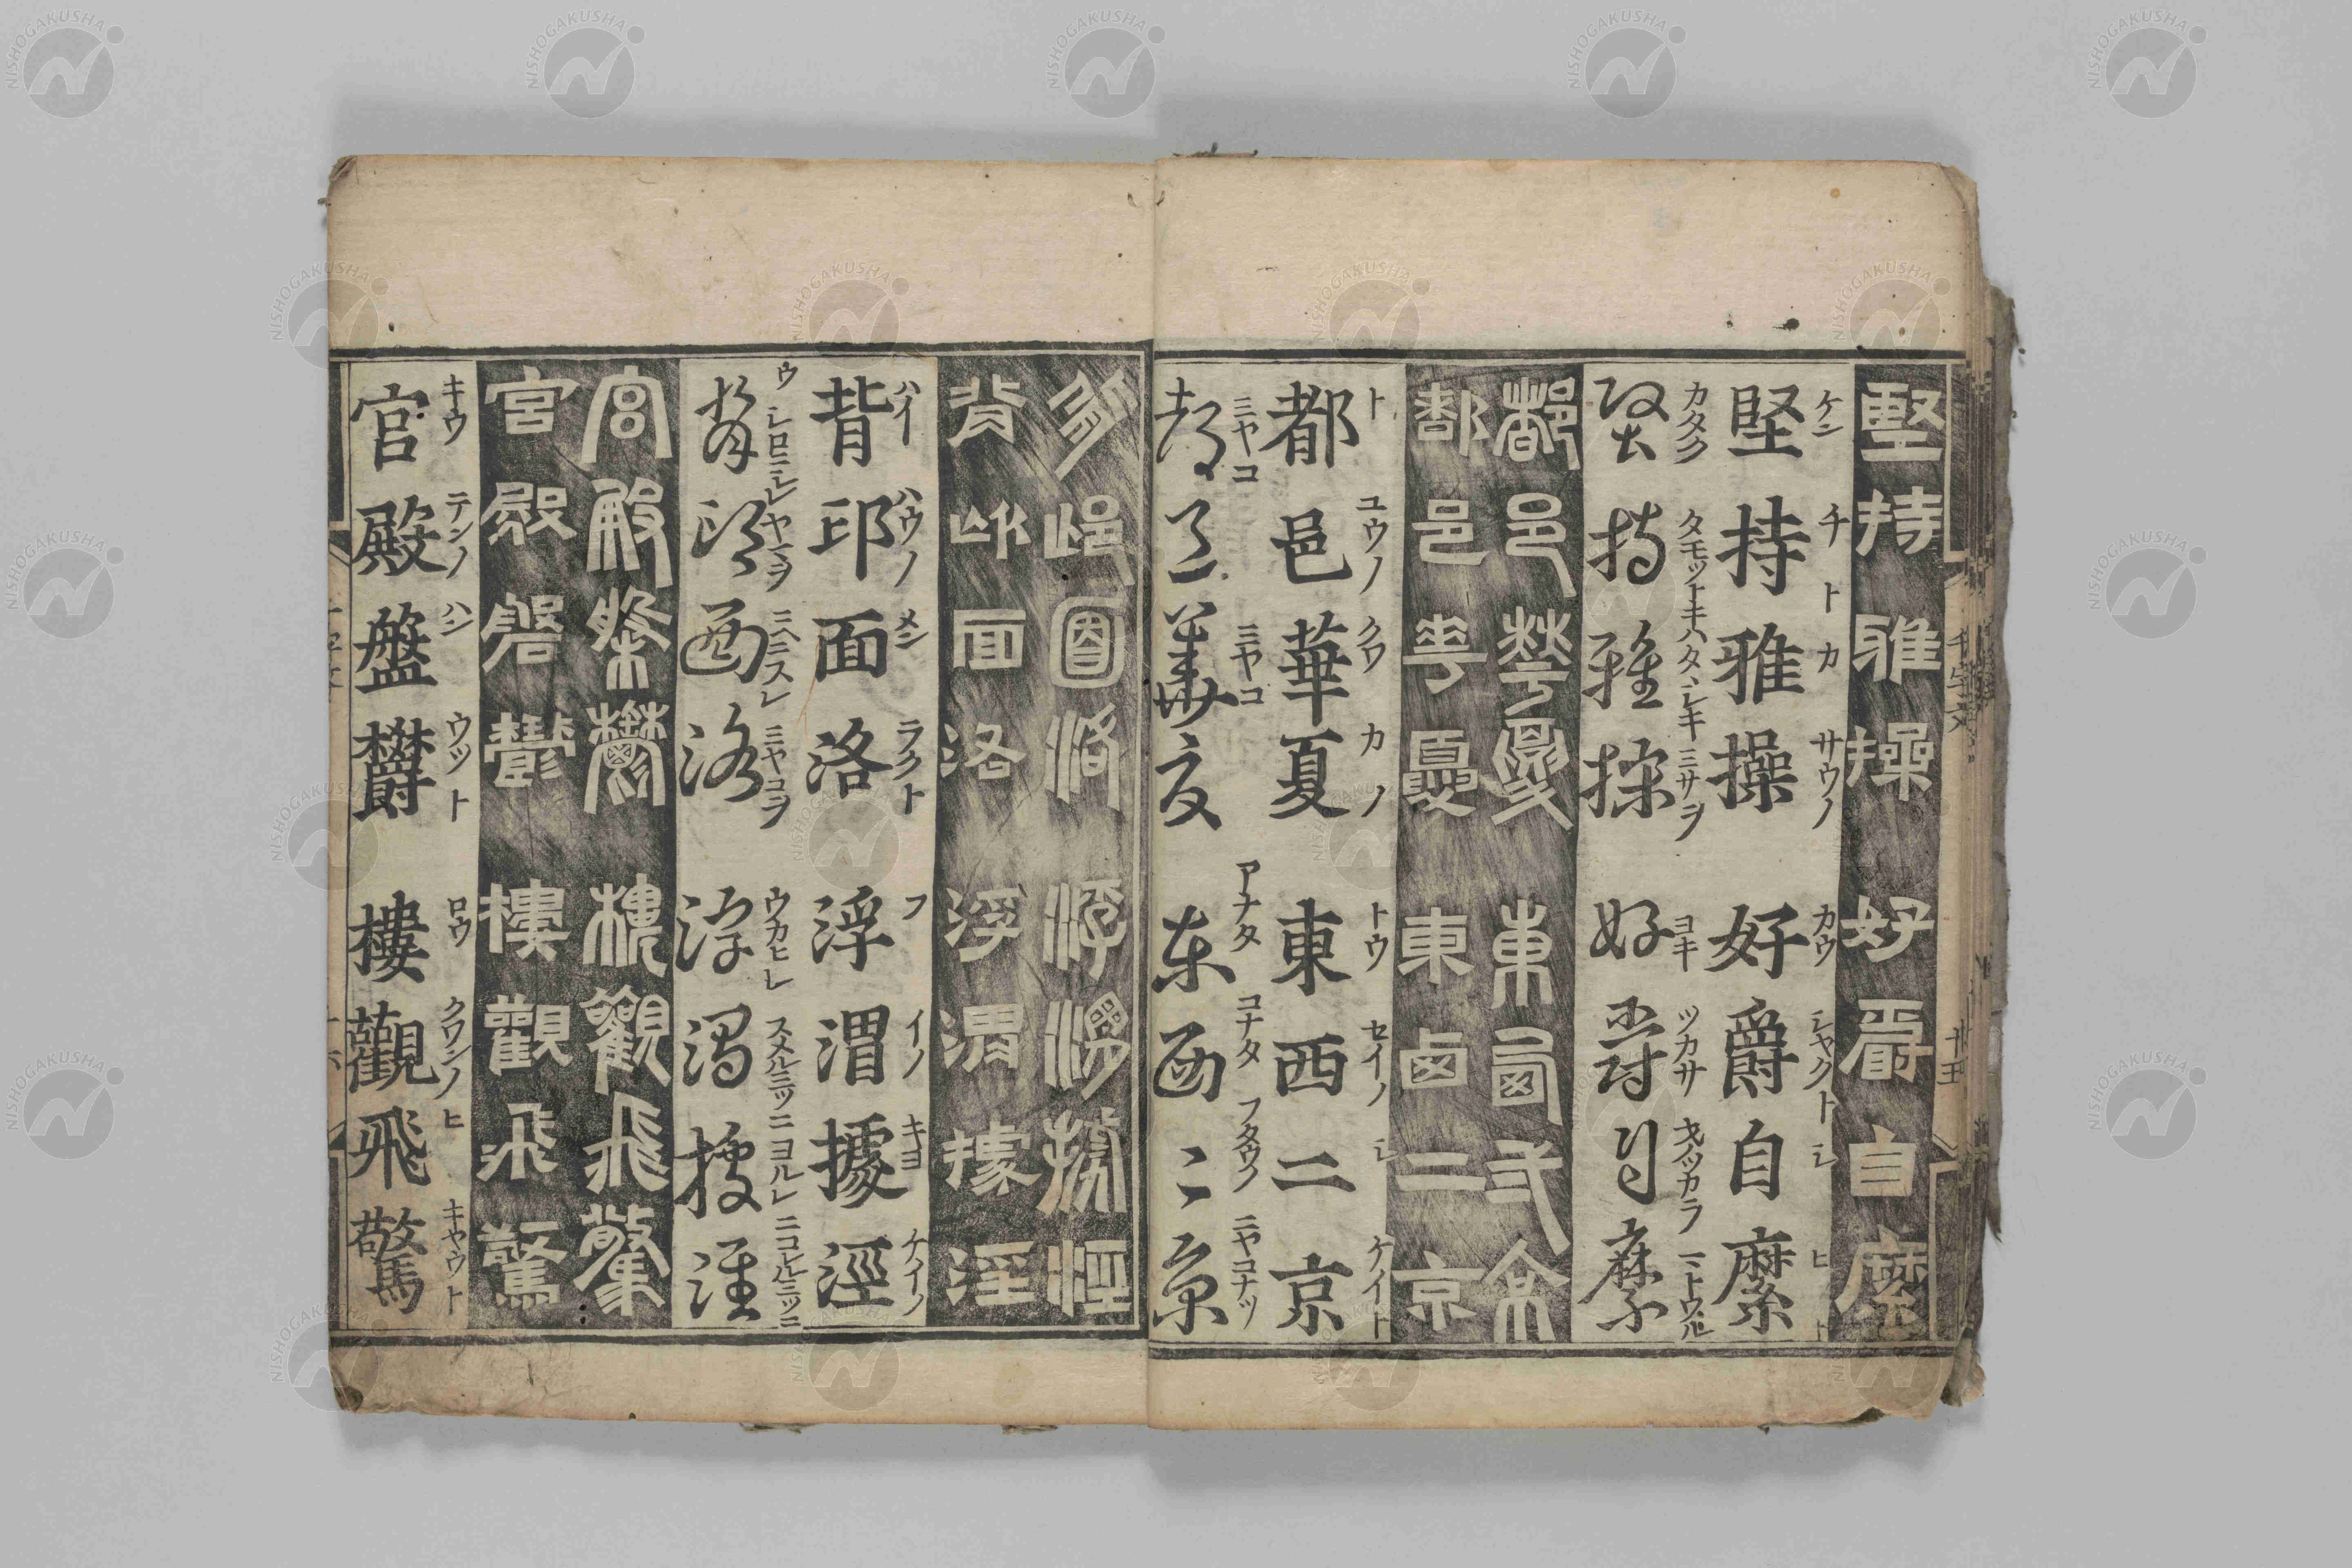 堅持雅操好爵自縻
ケン チ ト カ サウノ カウ シヤクト シ ヒ ト
堅持雅操好爵自縻
カタク タモツトキハタヽシキ ミサヲ ヨキ ツカサ ヲノツカラ マトウル
堅持雅操好爵自縻
都邑華夏東西二京
都邑華夏東西二京
ト ユウノ クワ カノ トウ セイノ シ ケイト
都邑華夏東西二京
ミヤコ ミヤコ アナタ コナタ フタツノ ミヤコナツ
都邑華夏東西二京
背邙面洛浮渭據涇
背邙面洛浮渭據涇
ハイ ハウノ メン ラクト フ イノ キヨ ケイノ
背邙面洛浮渭據涇
ウシロニシ ヤマヲ ミヤコヲ ウカヒ
背邙面洛浮渭據涇
宮殿盤鬱樓觀飛驚
宮殿盤鬱樓觀飛驚
キウ テンノ ハン ウツト ロウ クワンノ ヒ キヤウト
宮殿盤欝樓觀飛驚
千字文
十五
NISHOGAKUSHA